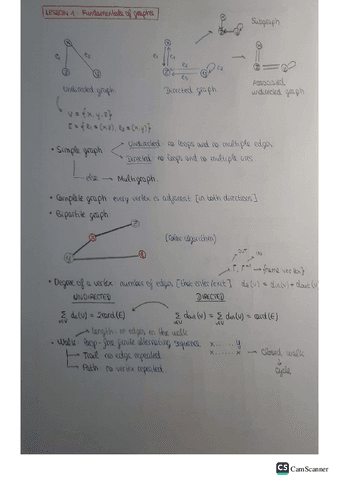 LESSON 1: Fundamentals of graphs
Subgraph
Undirected graph
Directed graph
Associated
undirected graph
V = {x, y, z}
• Simple graph
Undirected: no loops and no multiple edges.
Directed: no loops and no multiple arcs.
else → Multigraph.
• Complete graph: every vertex is adjacent [in both directions]
• Bipartite graph
(Color algorithm)
• Degree of a vertex: number of edges [that enter/exit]
UNDIRECTED
DIRECTED
length: nº edges in the walk
• Walk: finite alternating sequence x......y
Trail: no edge repeated. x......x → Closed walk
Path: no vertex repeated.
Cycle
CS CamScanner